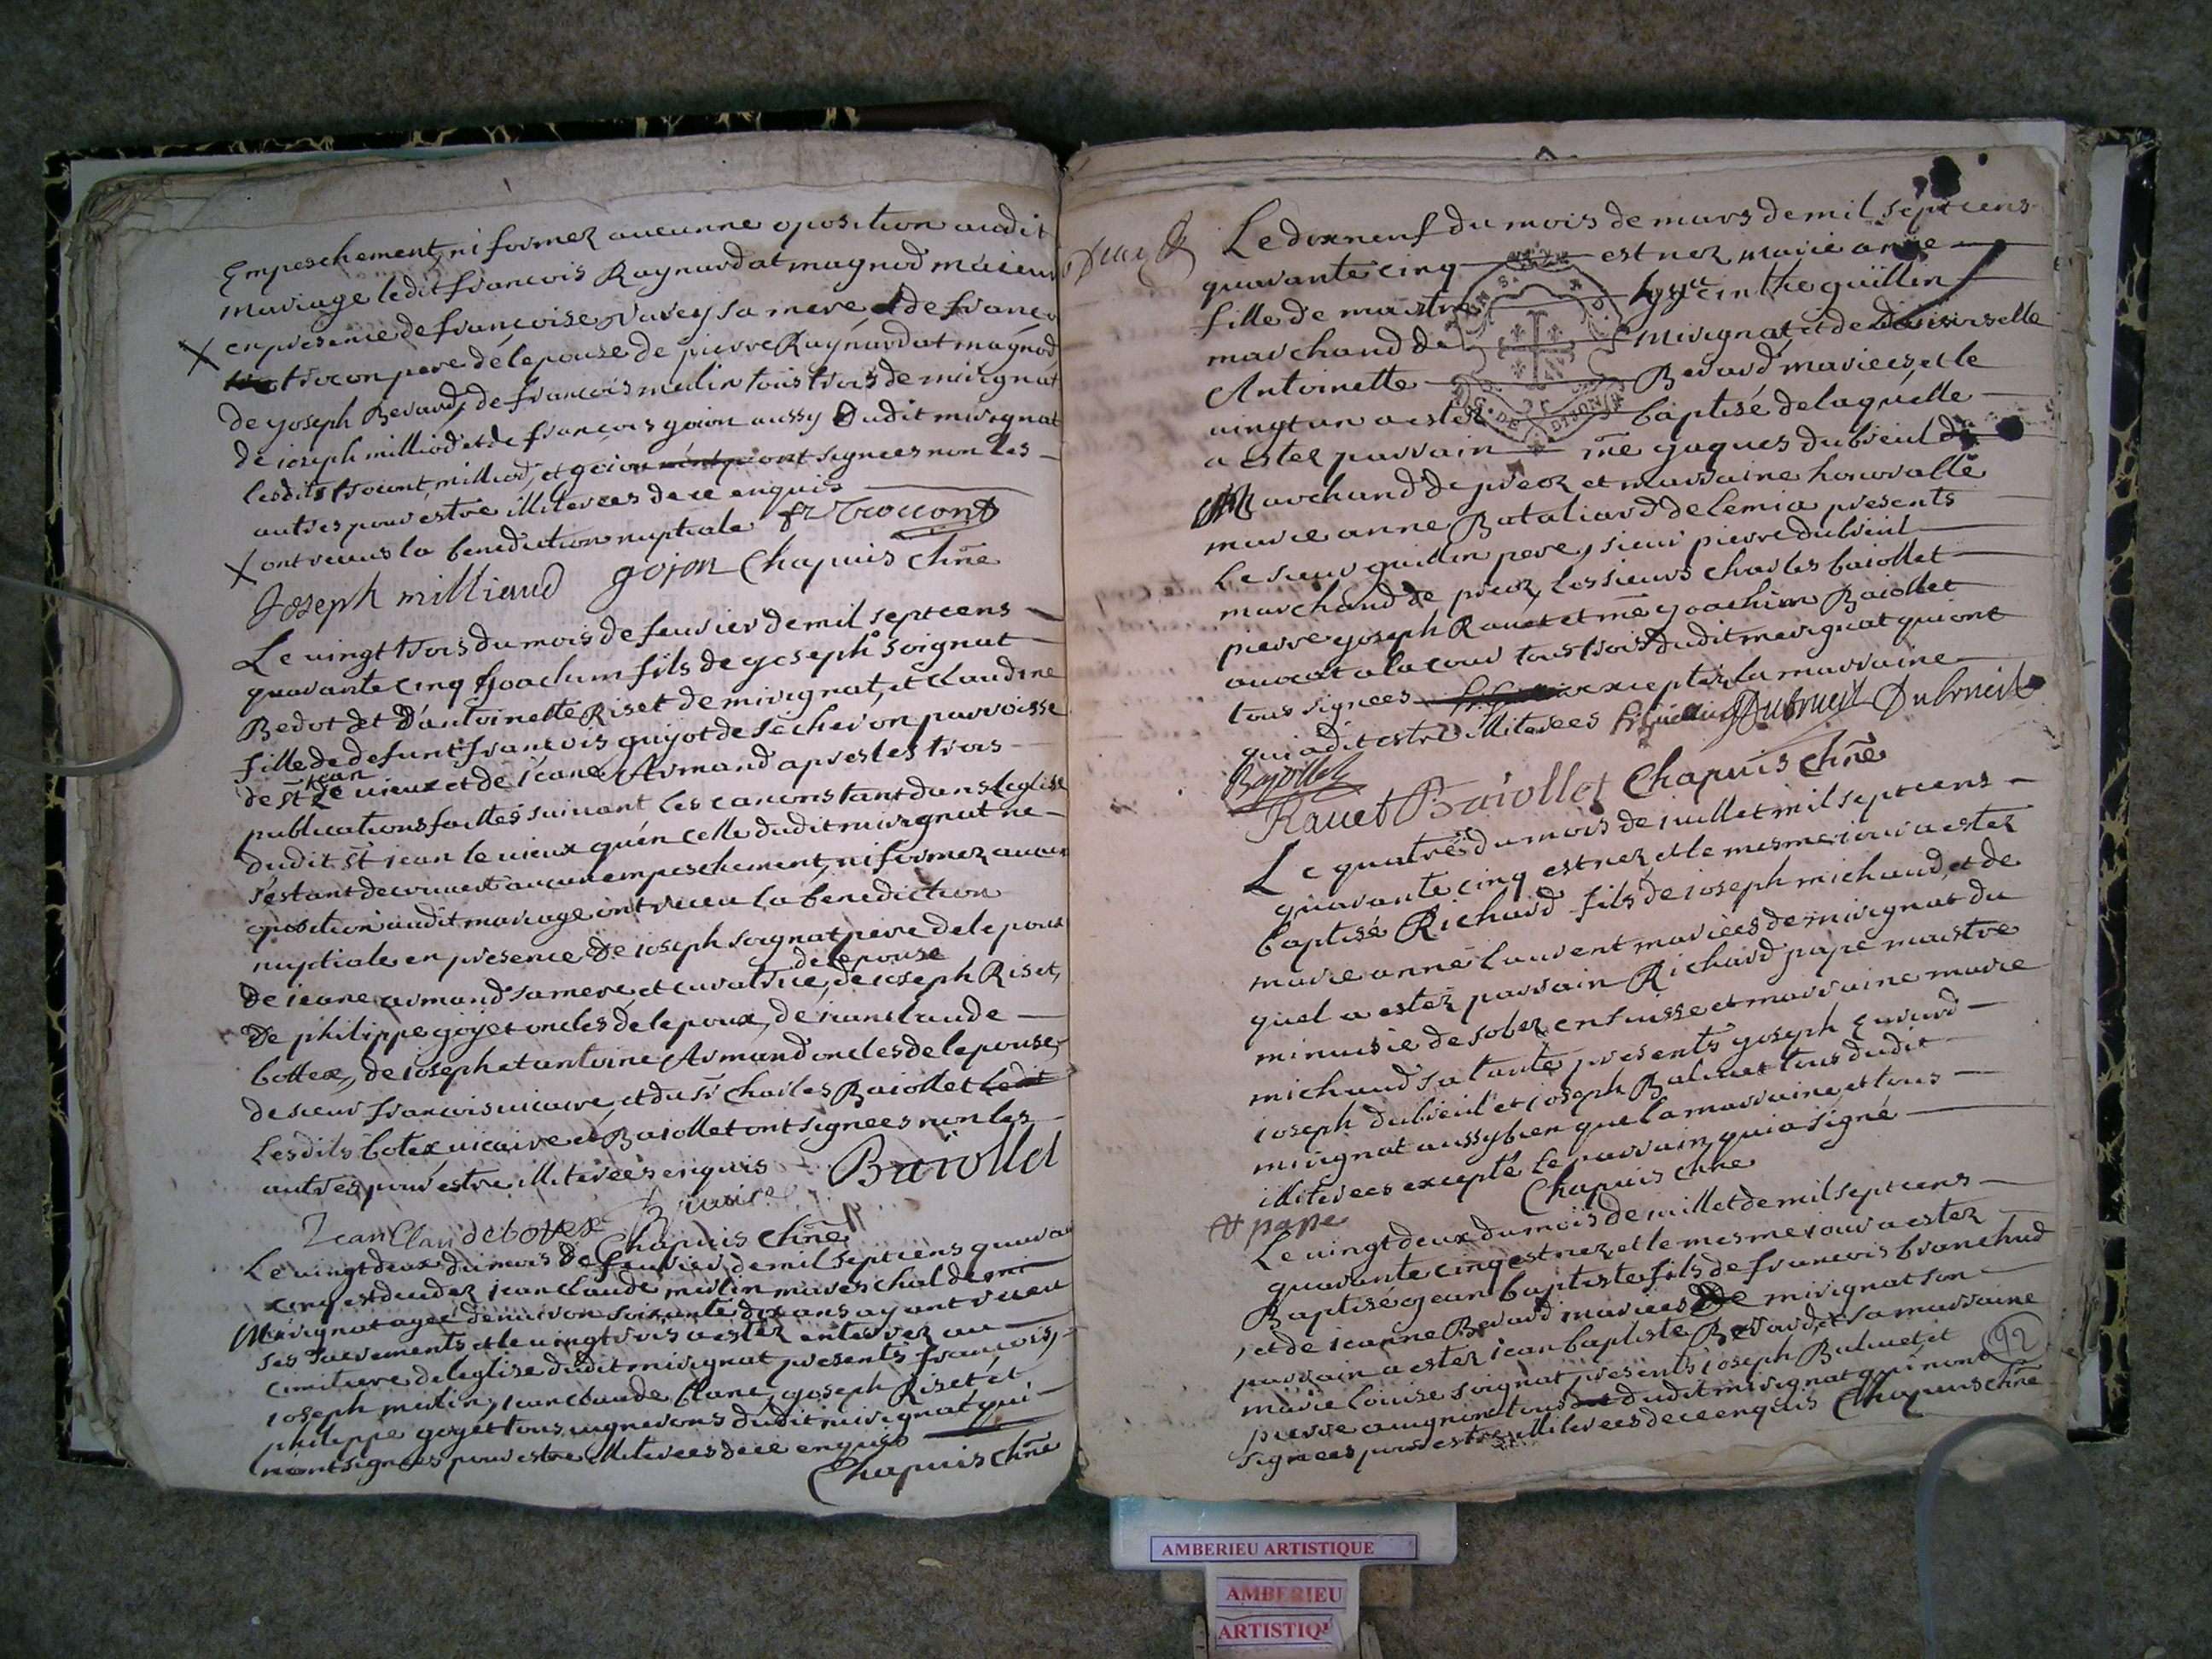 Empeschement, ni formez aucunne oposition audit
mariage ledit francois Raynardat magnod maieur
X en presence de francoise varey sa mere et de francois
trocon pere de lepouse de pierre Raynardat magnod
de yoseph Berard, de francois merlin tous trois de mirignat
de ioseph milliod et de francois goion aussy dudit mirignat
lesdits trocont, milliod, et goion ont signees non les
autres pour estre illiterees de ce enquis
X ont receus la benediction nuptiale fr Trocont
Joseph milliand gojon Chapuis Chne
Le vingt trois du mois de feuvier de mil sept cens
quarante cinq Joachim fils de yoseph Soignat
Bedot et d'antoinette Riset de mirignat, et Claudine
fille de defunt francois guyot de secheron parroisse
de st Jean Le vieux et de ieane Armand apres les trois
publications faittes suivant les canons tant dans leglise
dudit st iean le vieux qu'en celle dudit mirignat ne
s'estant decouvert aucun empeschement, ni formez aucune
oposition audit mariage ont receu la benediction
nuptiale en presence de ioseph soignat pere de lepoux
de lepouse
de ieane armand sa mere, et curatrice, de ioseph Riset,
de philippe goyet oncles de lepoux, de ieanclaude
bottex, de ioseph et antoine Armand oncles de lepouse,
de sieur francois vicaire, et du sr Charles Baiollet ledit
Lesdits botex vicaire et Baiollet ont signees non les
autres pour estre illiterees enquis Baiollet
Jean Claude botex fr vicaire
Chapuis Chne
Le vingt deux du mois de feuvier de mil sept cens quaran
cinq est decedez iean claude merlin mareschal de mi
Mirignat agee denviron soixante dix ans ayant receu
ses sacrements, et le vingt trois a estez enterrez au
cimitiere de leglise dudit mirignat presents francois,
ioseph merlin, iean claude blanc, yoseph Riset et
philippe goyet tous vignerons dudit mirignat qui
n'ont signees pour estre illiterees de ce enquis
Chapuis Chne
Le dixneuf du mois de mars de mil sept cens
quarante cinq est nez marie anne
fille de maistre hyacinthe guillin
marchand de mirignat et de demoiselle
Antoinette Berard mariees, et le
vingt un a estez baptisé de laquelle
a estez parrain me yaques dubreul
Marchand de preoz et marraine honorable
marie anne Bataliard de Lemia presents
Le sieur guillin pere, sieur pierre dubreul
marchand de preoz, les sieurs charles baiollet
pierre yoseph Ravet et me yoachim Baiollet
avocat a la cour tous trois dudit mirignat qui ont
tous signees excepter la marraine
qui a dit estre illiterees h guillin Dubrueil Dubrueil
Bajollet
Ravet Baiollet Chapuis Chne
Le quatre du mois de iuillet mil sept cens
quarante cinq est nez, et le mesme iour a estez
baptisé Richard fils de ioseph michaud, et de
marie anne laurent mariees de mirignat du
quel a estez parrain Richard pape maistre
minuisie de sobez en suisse et marraine marie
michaud sa tante, presents yoseph Evrard
ioseph dubreul et ioseph Balmet tous dudit
mirignat aussy bien que la marraine, et tous
illiterees excepté le parrain, qui a signé
Chapuis Chne
R pape
Le vingt deux du mois de iuillet de mil sept cens
quarante cinq est nez, et le mesme iour a estez
Baptisé yean baptiste fils de francois branchud
, et de ieanne Berard mariees de mirignat son
parrain a estez iean baptiste Berard, et sa marraine
marie louise soignat, presents ioseph Balmet, et
92
pierre auugnion tous dudit mirignat qui n'ont
signees pour estre illiterees de ce enquis Chapuis Chne
AMBERIEU ARTISTIQUE
AMBERIEU
ARTISTIQU